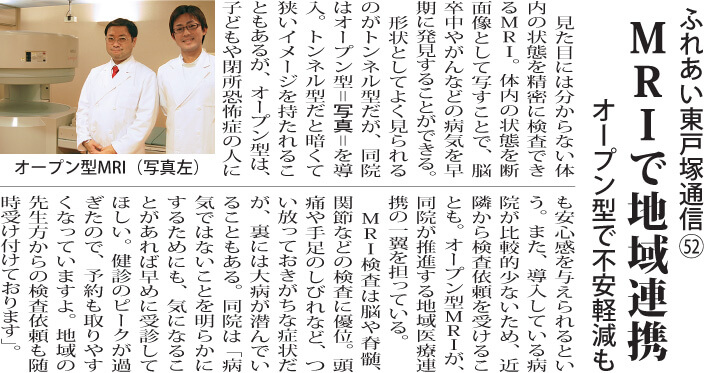 ふれあい東戸塚通信㊾
MRIで地域連携
オープン型で不安軽減も
見た目には分からない体
内の状態を精密に検査でき
るMRI。体内の状態を断
面像として写すことで、脳
卒中やがんなどの病気を早
期に発見することができる。
形状としてよく見られる
のがトンネル型だが、同院
はオープン型＝写真＝を導
入。トンネル型だと暗くて
狭いイメージを持たれるこ
ともあるが、オープン型は、
子どもや閉所恐怖症の人に
も安心感を与えられるとい
う。また、導入している病
院が比較的少ないため、近
隣から検査依頼を受けるこ
とも。オープン型MRIが、
同院が推進する地域医療連
携の一翼を担っている。
MRI検査は脳や脊髄、
関節などの検査に優位。頭
痛や手足のしびれなど、つ
い放っておきがちな症状だ
が、裏には大病が潜んでい
ることもある。同院は「病
気ではないことを明らかに
するためにも、気になるこ
とがあれば早めに受診して
ほしい。健診のピークが過
ぎたので、予約も取りやす
くなっていますよ。地域の
先生方からの検査依頼も随
時受け付けております」。
オープン型MRI（写真左）